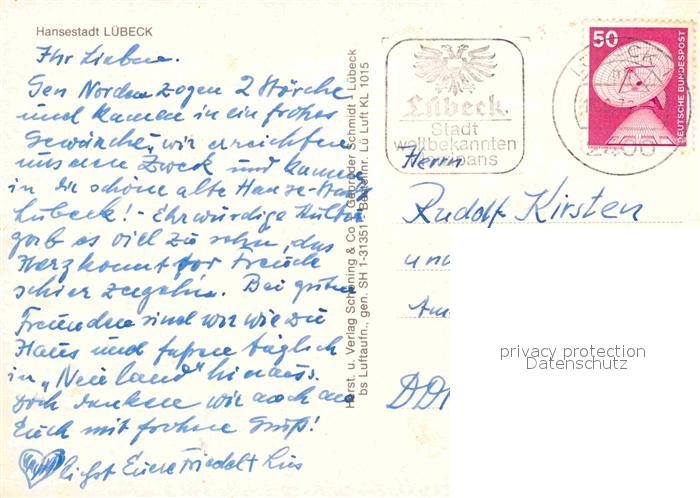 Hansestadt LÜBECK
Ihr Lieben.
Gen Norden zogen 2 Störche
und kamen in ein frohes
wir erreichten
unseren Zweck und kamen
in die schöne alte Hanse-Stadt
Lübeck! - Ehrwürdige Kultur
gab es viel zu sehn, das
Herz konnt vor Freude
schier zergehn. Bei guten
Freunden sind wir wie zu
Haus und fahren täglich
in "Neuland" hinaus.
Doch denken wir auch an
Euch mit frohem Gruß!
Euere
Herst. u. Verlag Schöning & Co + Gebrüder Schmidt - Lübeck
bs Luftaufn., gen. SH 1-31351 - Bestellnr. Lü Luft KL 1015
Lübeck
Stadt
weltbekannten
pans
LÜBECK
2400
50
DEUTSCHE BUNDESPOST
Herrn
Rudolf Kirsten
und
Am
DD
privacy protection
Datenschutz